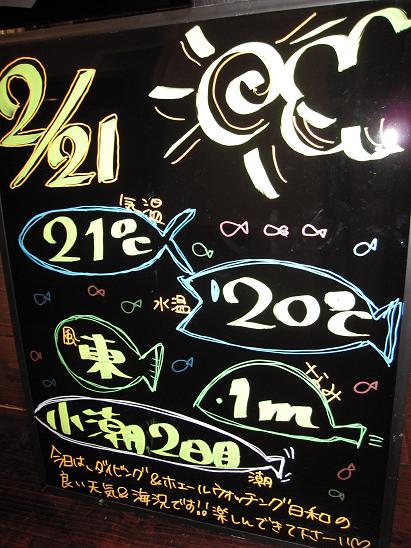 2/21
気温
21℃
水温
20℃
風
東
なみ
1m
小潮2日目
潮
今日は、ダイビング&ホエールウォッチング日和の
良い天気&海況です!!楽しんできて下さーい♡